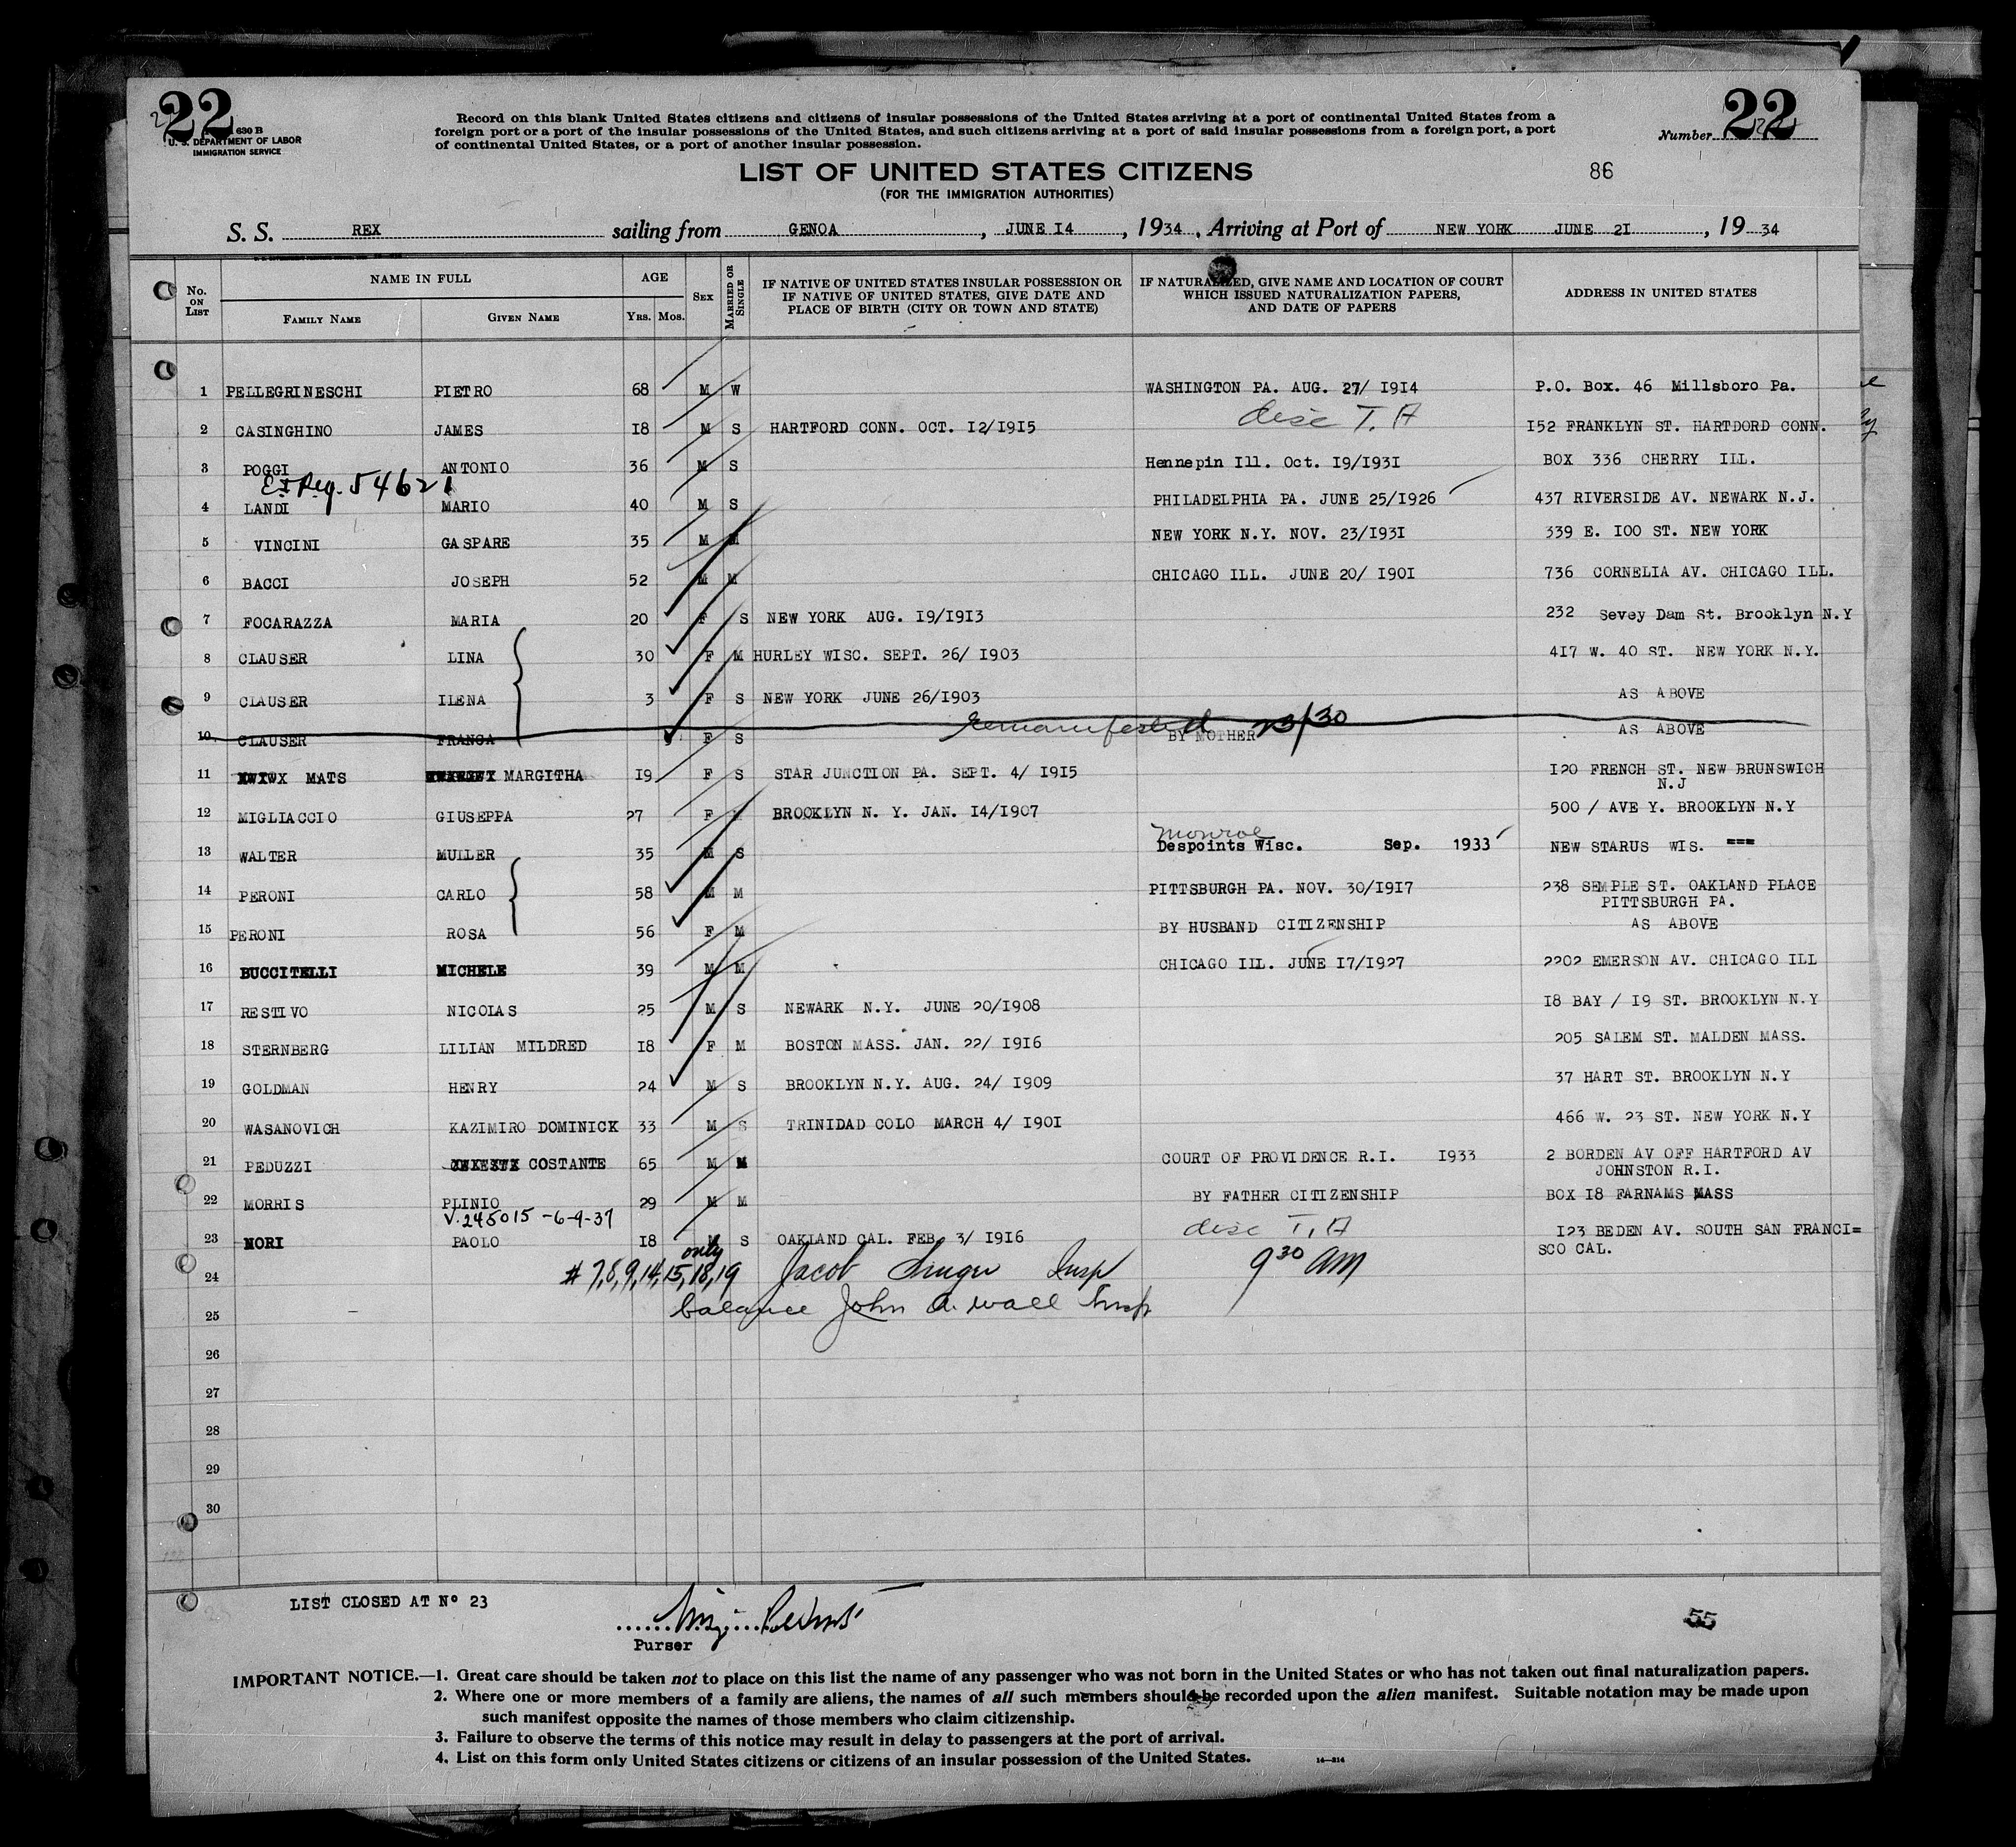 22
630 B
U. S. DEPARTMENT OF LABOR
IMMIGRATION SERVICE
Record on this blank United States citizens and citizens of insular possessions of the United States arriving at a port of continental United States from a
foreign port or a port of the insular possessions of the United States, and such citizens arriving at a port of said insular possessions from a foreign port, a port
of continental United States, or a port of another insular possession.
Number 22
LIST OF UNITED STATES CITIZENS
86
(FOR THE IMMIGRATION AUTHORITIES)
S. S. REX sailing from GENOA, JUNE I4, 1934, Arriving at Port of NEW YORK JUNE 2I, 19 34
No. ON LIST NAME IN FULL AGE SEX MARRIED OR SINGLE IF NATIVE OF UNITED STATES INSULAR POSSESSION OR IF NATIVE OF UNITED STATES, GIVE DATE AND PLACE OF BIRTH (CITY OR TOWN AND STATE) IF NATURALIZED, GIVE NAME AND LOCATION OF COURT WHICH ISSUED NATURALIZATION PAPERS, AND DATE OF PAPERS ADDRESS IN UNITED STATES
FAMILY NAME GIVEN NAME YRS. MOS.
1 PELLEGRINESCHI PIETRO 68 M W WASHINGTON PA. AUG. 27/ I9I4 P.O. Box. 46 Millsboro Pa.
disc T. A
2 CASINGHINO JAMES I8 M S HARTFORD CONN. OCT. I2/I9I5 I52 FRANKLYN ST. HARTDORD CONN.
3 POGGI ANTONIO 36 M S Hennepin Ill. Oct. I9/I93I BOX 336 CHERRY ILL.
Ex Reg. 54621
4 LANDI MARIO 40 M S PHILADELPHIA PA. JUNE 25/I926 437 RIVERSIDE AV. NEWARK N.J.
5 VINCINI GASPARE 35 M M NEW YORK N.Y. NOV. 23/I93I 339 E. I00 ST. NEW YORK
6 BACCI JOSEPH 52 M M CHICAGO ILL. JUNE 20/ I90I 736 CORNELIA AV. CHICAGO ILL.
7 FOCARAZZA MARIA 20 F S NEW YORK AUG. I9/I9I3 232 Sevey Dam St. Brooklyn N.Y
8 CLAUSER LINA 30 F M HURLEY WISC. SEPT. 26/ I903 4I7 W. 40 ST. NEW YORK N.Y.
9 CLAUSER ILENA 3 F S NEW YORK JUNE 26/I903 AS ABOVE
Remanifested 23/30
10 CLAUSER FRANCA F S BY MOTHER AS ABOVE
11 MATS MARGITHA I9 F S STAR JUNCTION PA. SEPT. 4/ I9I5 I20 FRENCH ST. NEW BRUNSWICH
N.J
12 MIGLIACCIO GIUSEPPA 27 F BROOKLYN N. Y. JAN. I4/I907 500 / AVE Y. BROOKLYN N.Y
Monroe
13 WALTER MULLER 35 M S Despoints Wisc. Sep. 1933 NEW STARUS WIS. ===
14 PERONI CARLO 58 M M PITTSBURGH PA. NOV. 30/I9I7 238 SEMPLE ST. OAKLAND PLACE
PITTSBURGH PA.
15 PERONI ROSA 56 F M BY HUSBAND CITIZENSHIP AS ABOVE
16 BUCCITELLI MICHELE 39 M M CHICAGO ILL. JUNE I7/I927 2202 EMERSON AV. CHICAGO ILL
17 RESTIVO NICOLAS 25 M S NEWARK N.Y. JUNE 20/I908 I8 BAY / I9 ST. BROOKLYN N.Y
18 STERNBERG LILIAN MILDRED I8 F M BOSTON MASS. JAN. 22/ I9I6 205 SALEM ST. MALDEN MASS.
19 GOLDMAN HENRY 24 M S BROOKLYN N.Y. AUG. 24/ I909 37 HART ST. BROOKLYN N.Y
20 WASANOVICH KAZIMIRO DOMINICK 33 M S TRINIDAD COLO MARCH 4/ I90I 466 W. 23 ST. NEW YORK N.Y
21 PEDUZZI COSTANTE 65 M M COURT OF PROVIDENCE R.I. I933 2 BORDEN AV OFF HARTFORD AV
JOHNSTON R.I.
22 MORRIS PLINIO 29 M M BY FATHER CITIZENSHIP BOX I8 FARNAMS MASS
V.245015 -6-9-37
disc T. A
23 NORI PAOLO I8 M S OAKLAND CAL. FEB. 3/ I9I6 I23 BEDEN AV. SOUTH SAN FRANCI=
SCO CAL.
only
24 # 7,8,9,14,15,18,19 Jacob Singer Insp 9 30 AM
25 balance John A. Wall Insp
26
27
28
29
30
LIST CLOSED AT Nº 23
55
Purser
IMPORTANT NOTICE.—1. Great care should be taken not to place on this list the name of any passenger who was not born in the United States or who has not taken out final naturalization papers.
2. Where one or more members of a family are aliens, the names of all such members should be recorded upon the alien manifest. Suitable notation may be made upon
such manifest opposite the names of those members who claim citizenship.
3. Failure to observe the terms of this notice may result in delay to passengers at the port of arrival.
4. List on this form only United States citizens or citizens of an insular possession of the United States.
14—214